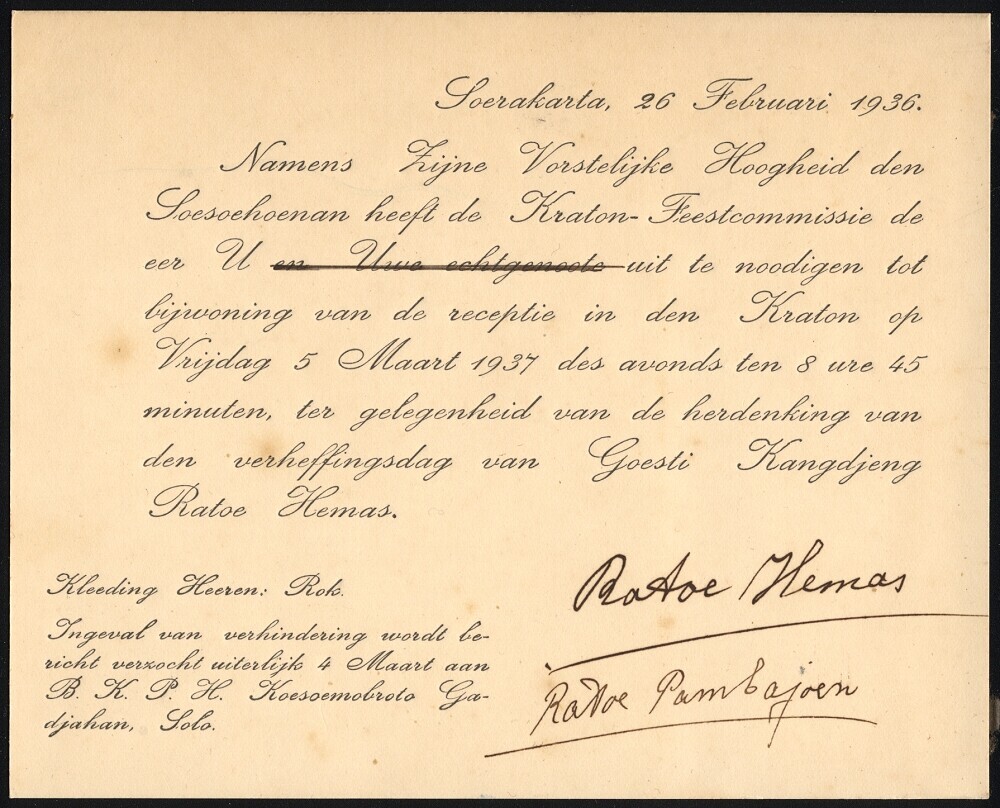 Soerakarta, 26 Februari 1936.
Namens Zijne Vorstelijke Hoogheid den
Soesoehoenan heeft de Kraton-Feestcommissie de
eer U en Uwe echtgenoote uit te noodigen tot
bijwoning van de receptie in den Kraton op
Vrijdag 5 Maart 1937 des avonds ten 8 ure 45
minuten, ter gelegenheid van de herdenking van
den verheffingsdag van Goesti Kangdjeng
Ratoe Hemas.
Kleeding Heeren: Rok.
Ingeval van verhindering wordt be-
richt verzocht uiterlijk 4 Maart aan
B. K. P. H. Koesoemobroto Ga-
djahan, Solo.
Ratoe Hemas
Ratoe Pambajoen